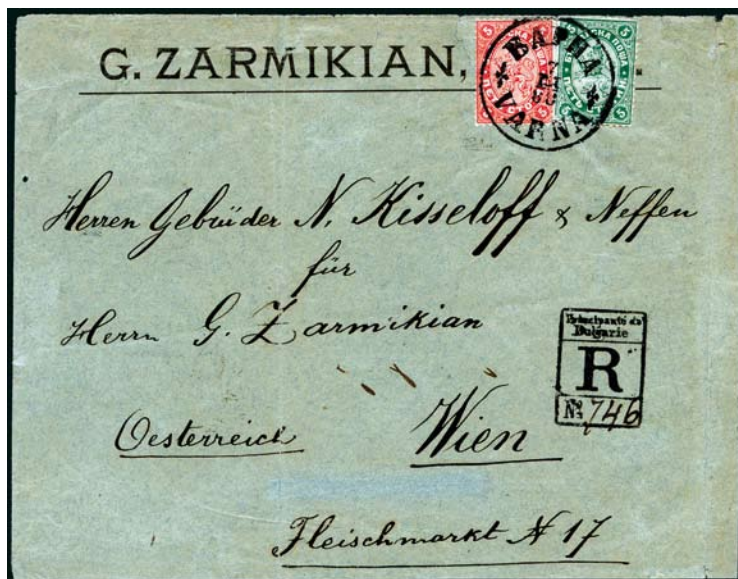 G. ZARMIKIAN,
ВАРНА
VARNA
Herren Gebrüder N. Kisseloff & Neffen
für
Herrn G. Zarmikian
Principauté de
Bulgarie
R
No 746
Oesterreich Wien
Fleischmarkt N 17